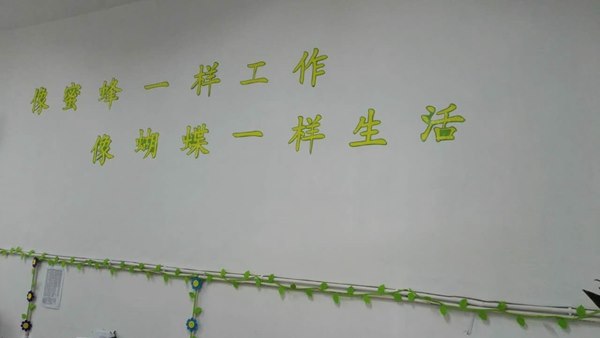 像蜜蜂一样工作
像蝴蝶一样生活